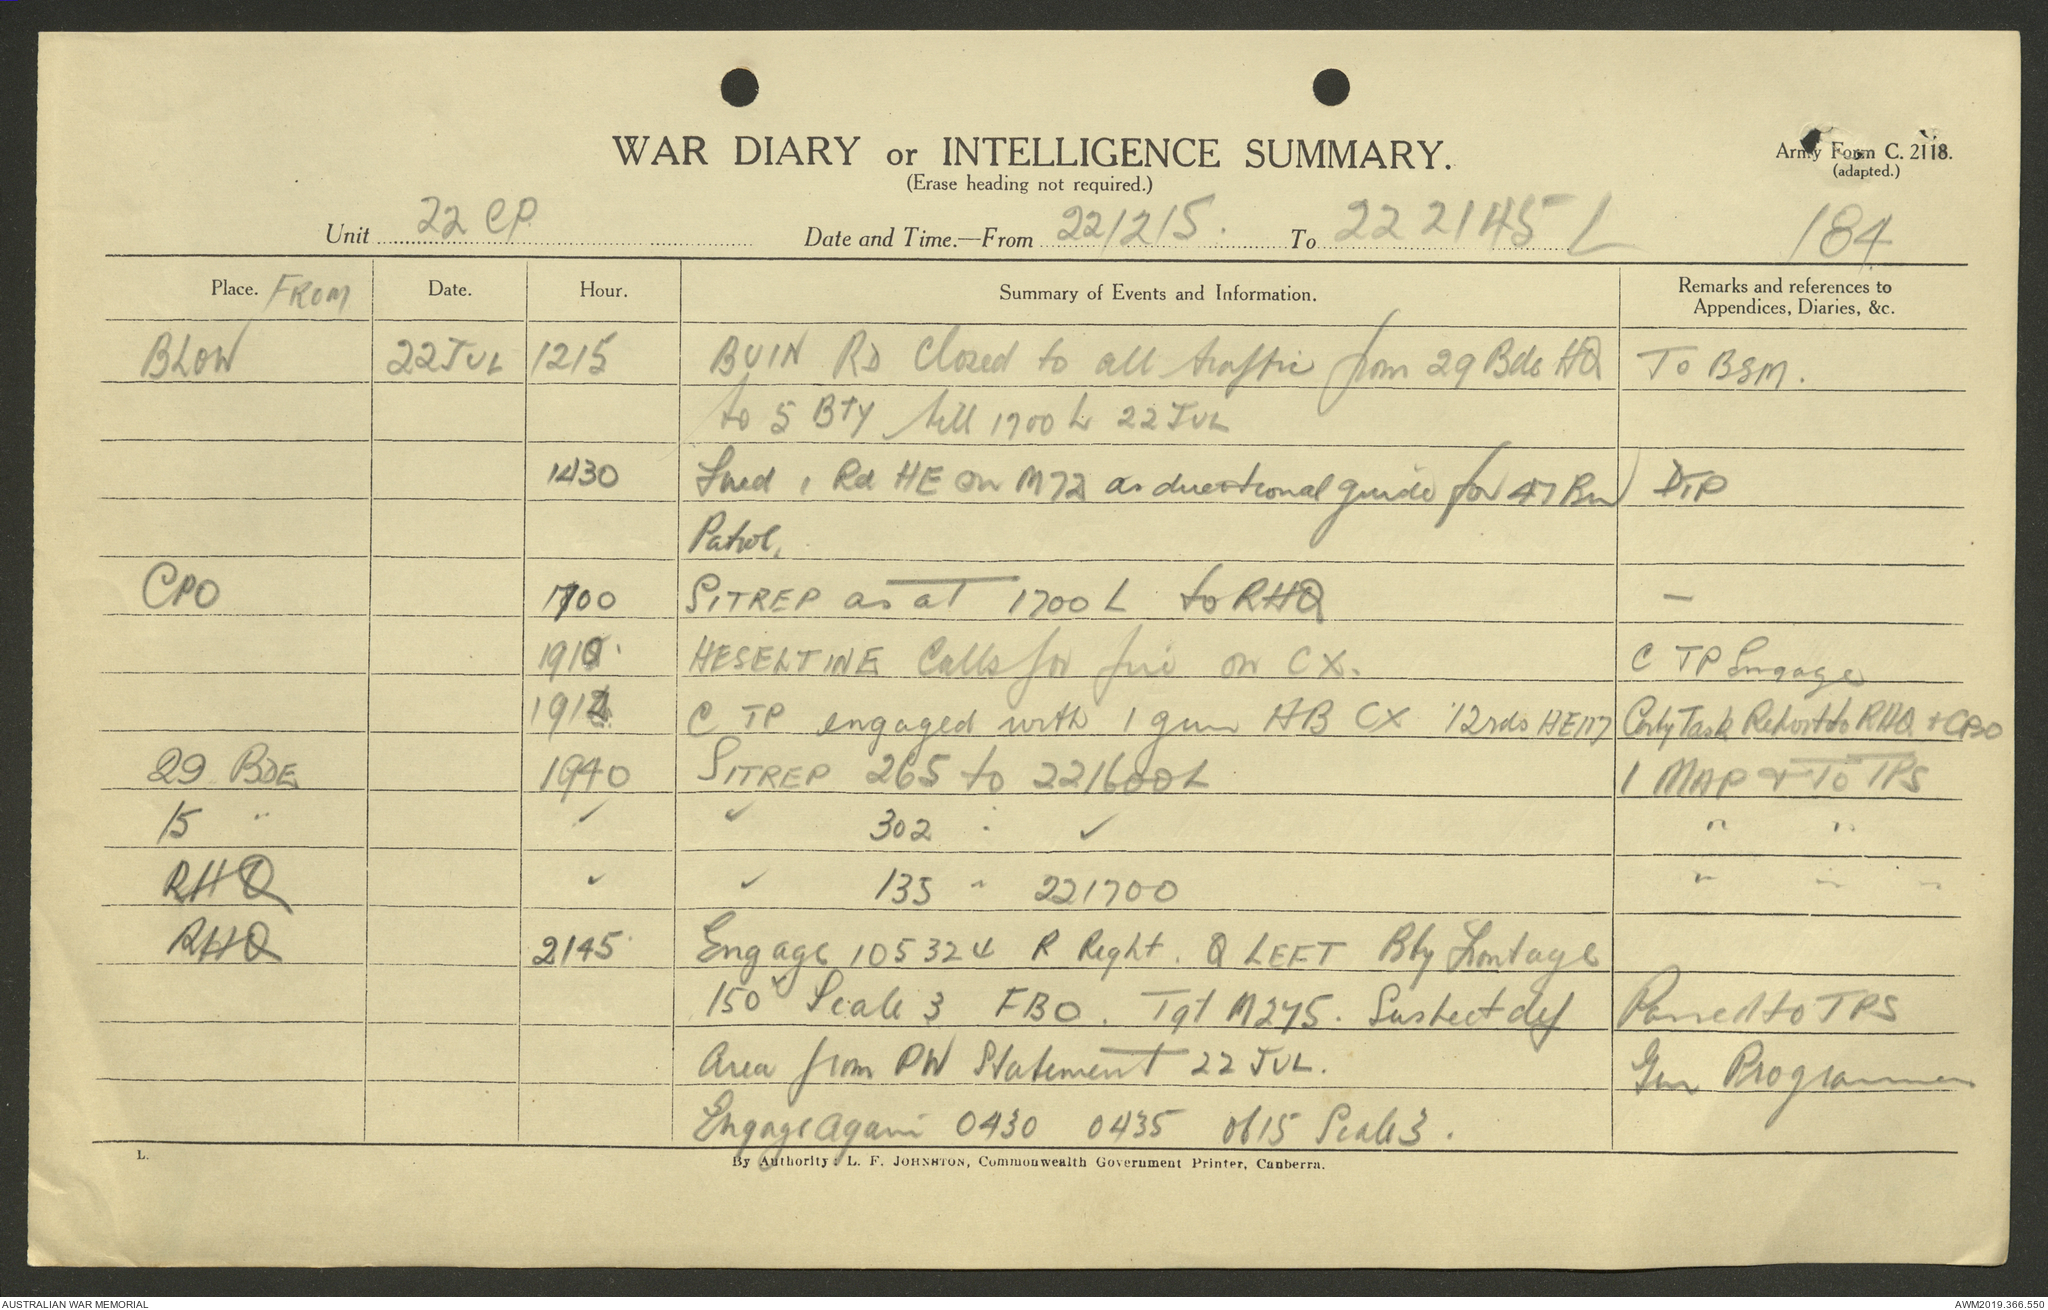 WAR DIARY or INTELLIGENCE SUMMARY.
(Erase heading not required.)
Army Form C. 2118.
(adapted.)
184
Unit 22 CP Date and Time.—From 221215. To 22 2145 L
Place. FROM Date. Hour. Summary of Events and Information. Remarks and references to Appendices, Diaries, &c.
BLOW 22 JUL 1215 BUIN RD Closed to all traffic from 29 Bde HQ To BSM.
to 5 BTY till 1700 L 22 JUL
1430 Fired 1 Rd HE on M72 as directional guide for 47 Bn
Patrol.
CPO 1700 SITREP as at 1700 L to RHQ —
1910 HESELTINE Calls for fire on CX. C TP Engage
1912 C TP engaged with 1 gun HB CX 12 rds HE 117 Task Report to RHQ + CPO
29 BDE 1940 SITREP 265 to 221600L 1 MAP & To TPS
15 " ✓ ✓ 302 " ✓ " "
RHQ ✓ ✓ 135 " 221700 " " "
RHQ 2145 Engage 105324 R Right. Q LEFT Bty Frontage
150x Scale 3 FBO. Tgt M275. Suspect def Passed to TPS
Area from PW Statement 22 JUL. Gun Programmes
Engage again 0430 0435 0615 Scale 3.
L.
By Authority: L. F. JOHNSTON, Commonwealth Government Printer, Canberra.
AUSTRALIAN WAR MEMORIAL
AWM2019.366.550